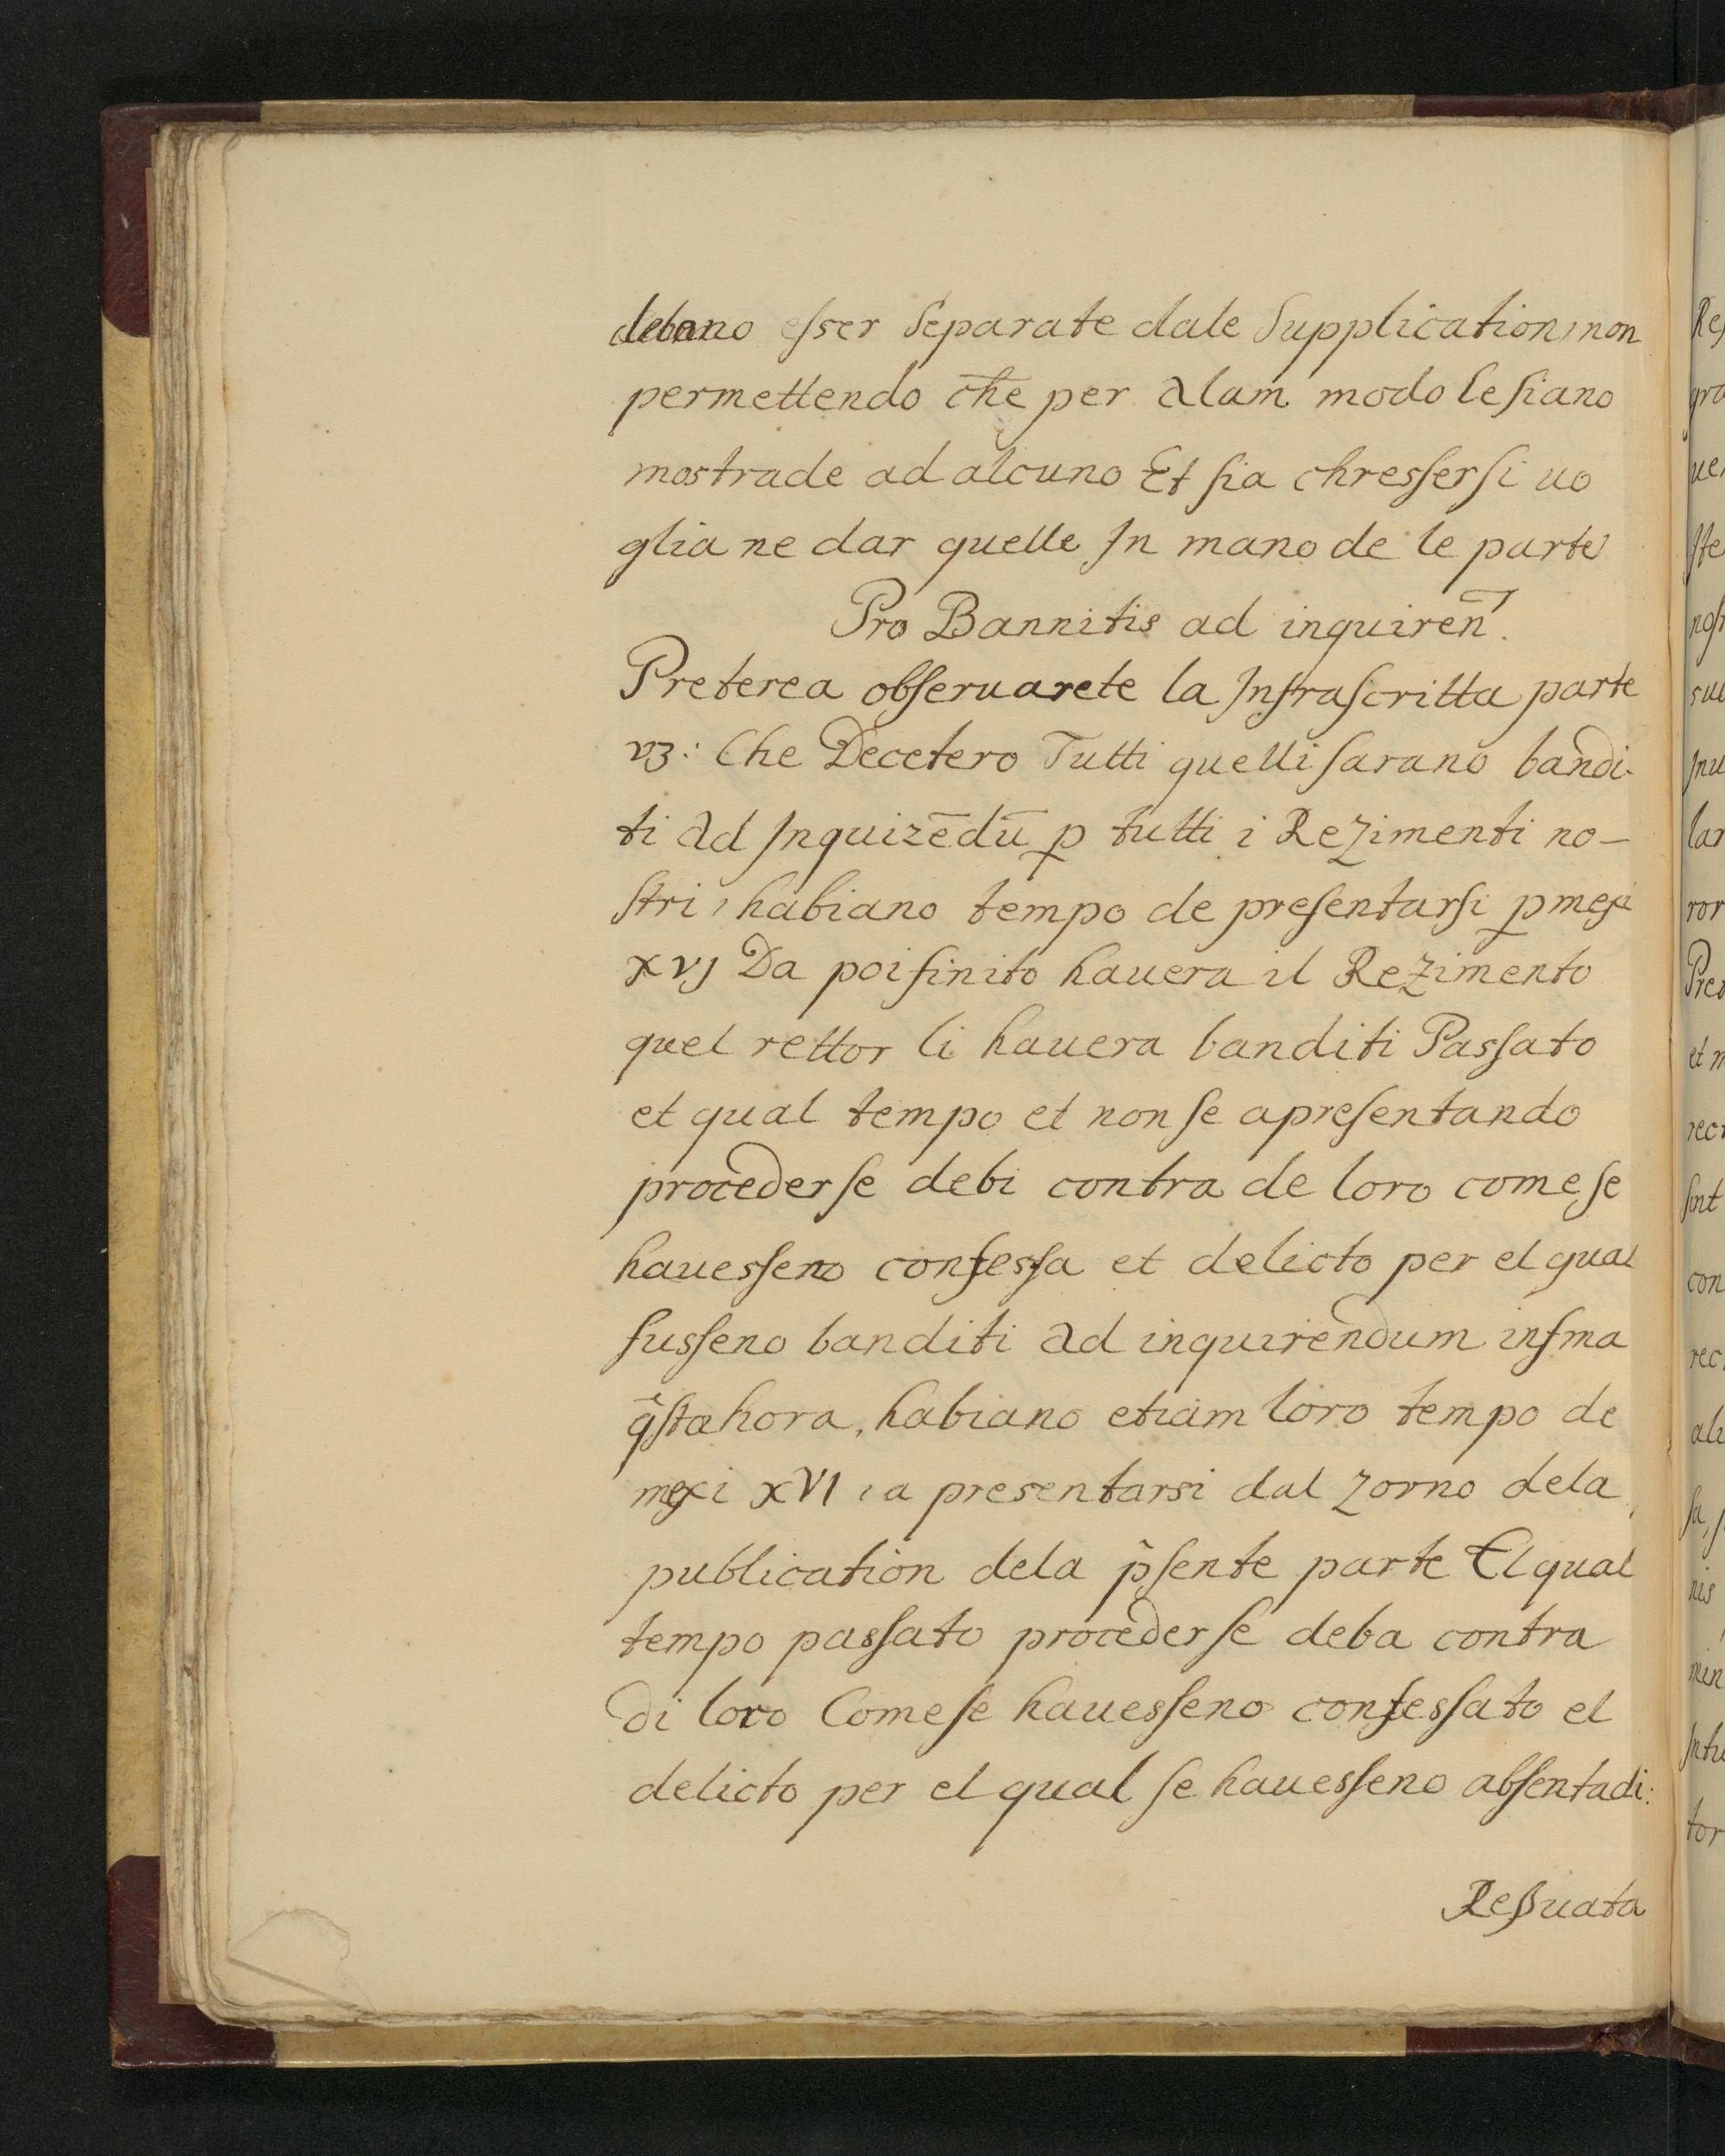 debano eſser Separate dale Supplication, non
permettendo ch̄e per alam modo le ſiano
mostrade ad alcuno Et ſia chresſer ſi uo
glia ne dar quelle In mano de le parte
Pro Bannitis ad inquiren̄.
Preterea obſeruarete la Infraſcritta parte
vz: Che Decetero Tutti quelli ſarano bandi-
ti ad Inquizēdū ꝑ tutti i Rezimenti no-
ſtri, habiano tempo de preſentarſi ꝑ mexi
XVJ Da poi finito hauera il Rezimento
quel rettor li hauera banditi Pasſato
et qual tempo et non ſe apreſentando
proceder ſe debi contra de loro come ſe
hauesſeno confesſa et delicto per el qual
fusſeno banditi ad inquirendum infina
q̃ſta hora, habiano etiam loro tempo de
mexi XVI, a presentarsi dal zorno dela
publication dela p̃ſente parte El qual
tempo pasſato proceder ſe deba contra
di loro Come ſe hauesſeno confesſato el
delicto per el qual ſe hauesſeno abſentadi:
Reſſuata
Re
gra
ue
ſte
noſt
sue
Inu
lar
ror
Pre
et n
rec
ſint
con
rec
ali
ſa, ſ
nis
min
Intu
tor